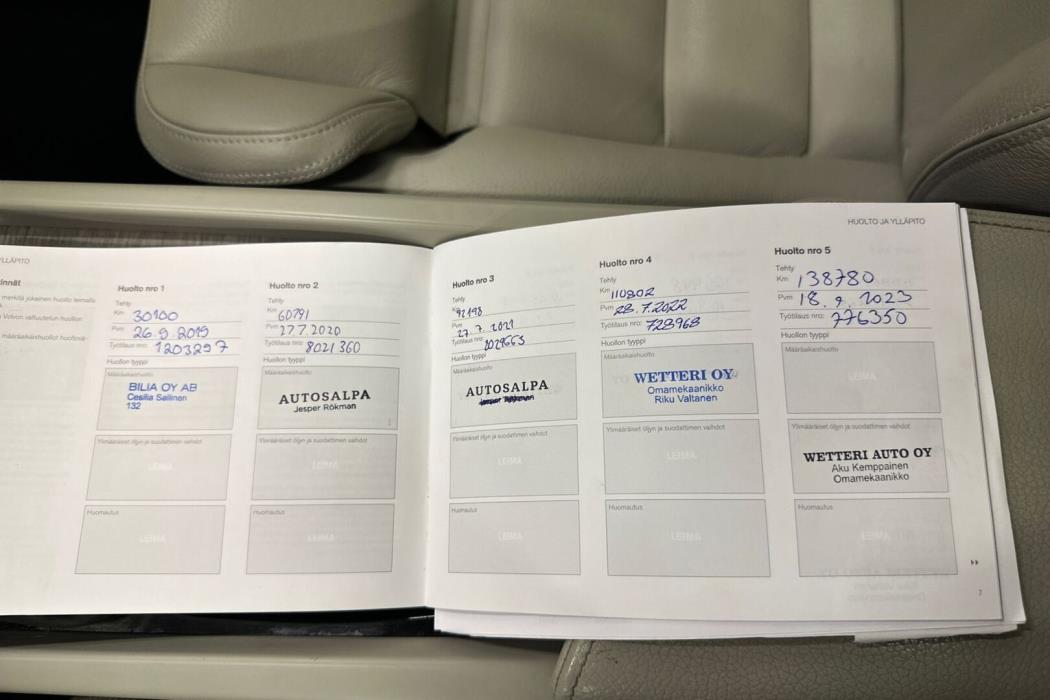 HUOLTO JA YLLÄPITO
YLLÄPITO
innät
merkitä jokainen huolto leimalla
Volvon valtuutetun huollon
määräaikaishuollot huoltovä
Huolto nro 1
Tehty
Km 30100
Pvm 26.9.2019
Työtilaus nro: 1203297
Huollon tyyppi
Määräaikaishuolto
BILIA OY AB
Cesilia Sallinen
132
Ylimääräiset öljyn ja suodattimen vaihdot
LEIMA
Huomautus
LEIMA
Huolto nro 2
Tehty
Km 60791
Pvm 27.7.2020
Työtilaus nro: 8021360
Huollon tyyppi
Määräaikaishuolto
AUTOSALPA
Jesper Rökman
Ylimääräiset öljyn ja suodattimen vaihdot
LEIMA
Huomautus
LEIMA
Huolto nro 3
Tehty
Km 92198
Pvm 27.7.2021
Työtilaus nro:
Huollon tyyppi
Määräaikaishuolto
AUTOSALPA
Jesper Rökman
Ylimääräiset öljyn ja suodattimen vaihdot
LEIMA
Huomautus
LEIMA
Huolto nro 4
Tehty
Km 110802
Pvm 28.7.2022
Työtilaus nro: 728968
Huollon tyyppi
Määräaikaishuolto
WETTERI OY
Omamekaanikko
Riku Valtanen
Ylimääräiset öljyn ja suodattimen vaihdot
LEIMA
Huomautus
LEIMA
Huolto nro 5
Tehty
Km 138780
Pvm 18.9.2023
Työtilaus nro: 776350
Huollon tyyppi
Määräaikaishuolto
LEIMA
Ylimääräiset öljyn ja suodattimen vaihdot
WETTERI AUTO OY
Aku Kemppainen
Omamekaanikko
Huomautus
LEIMA
7